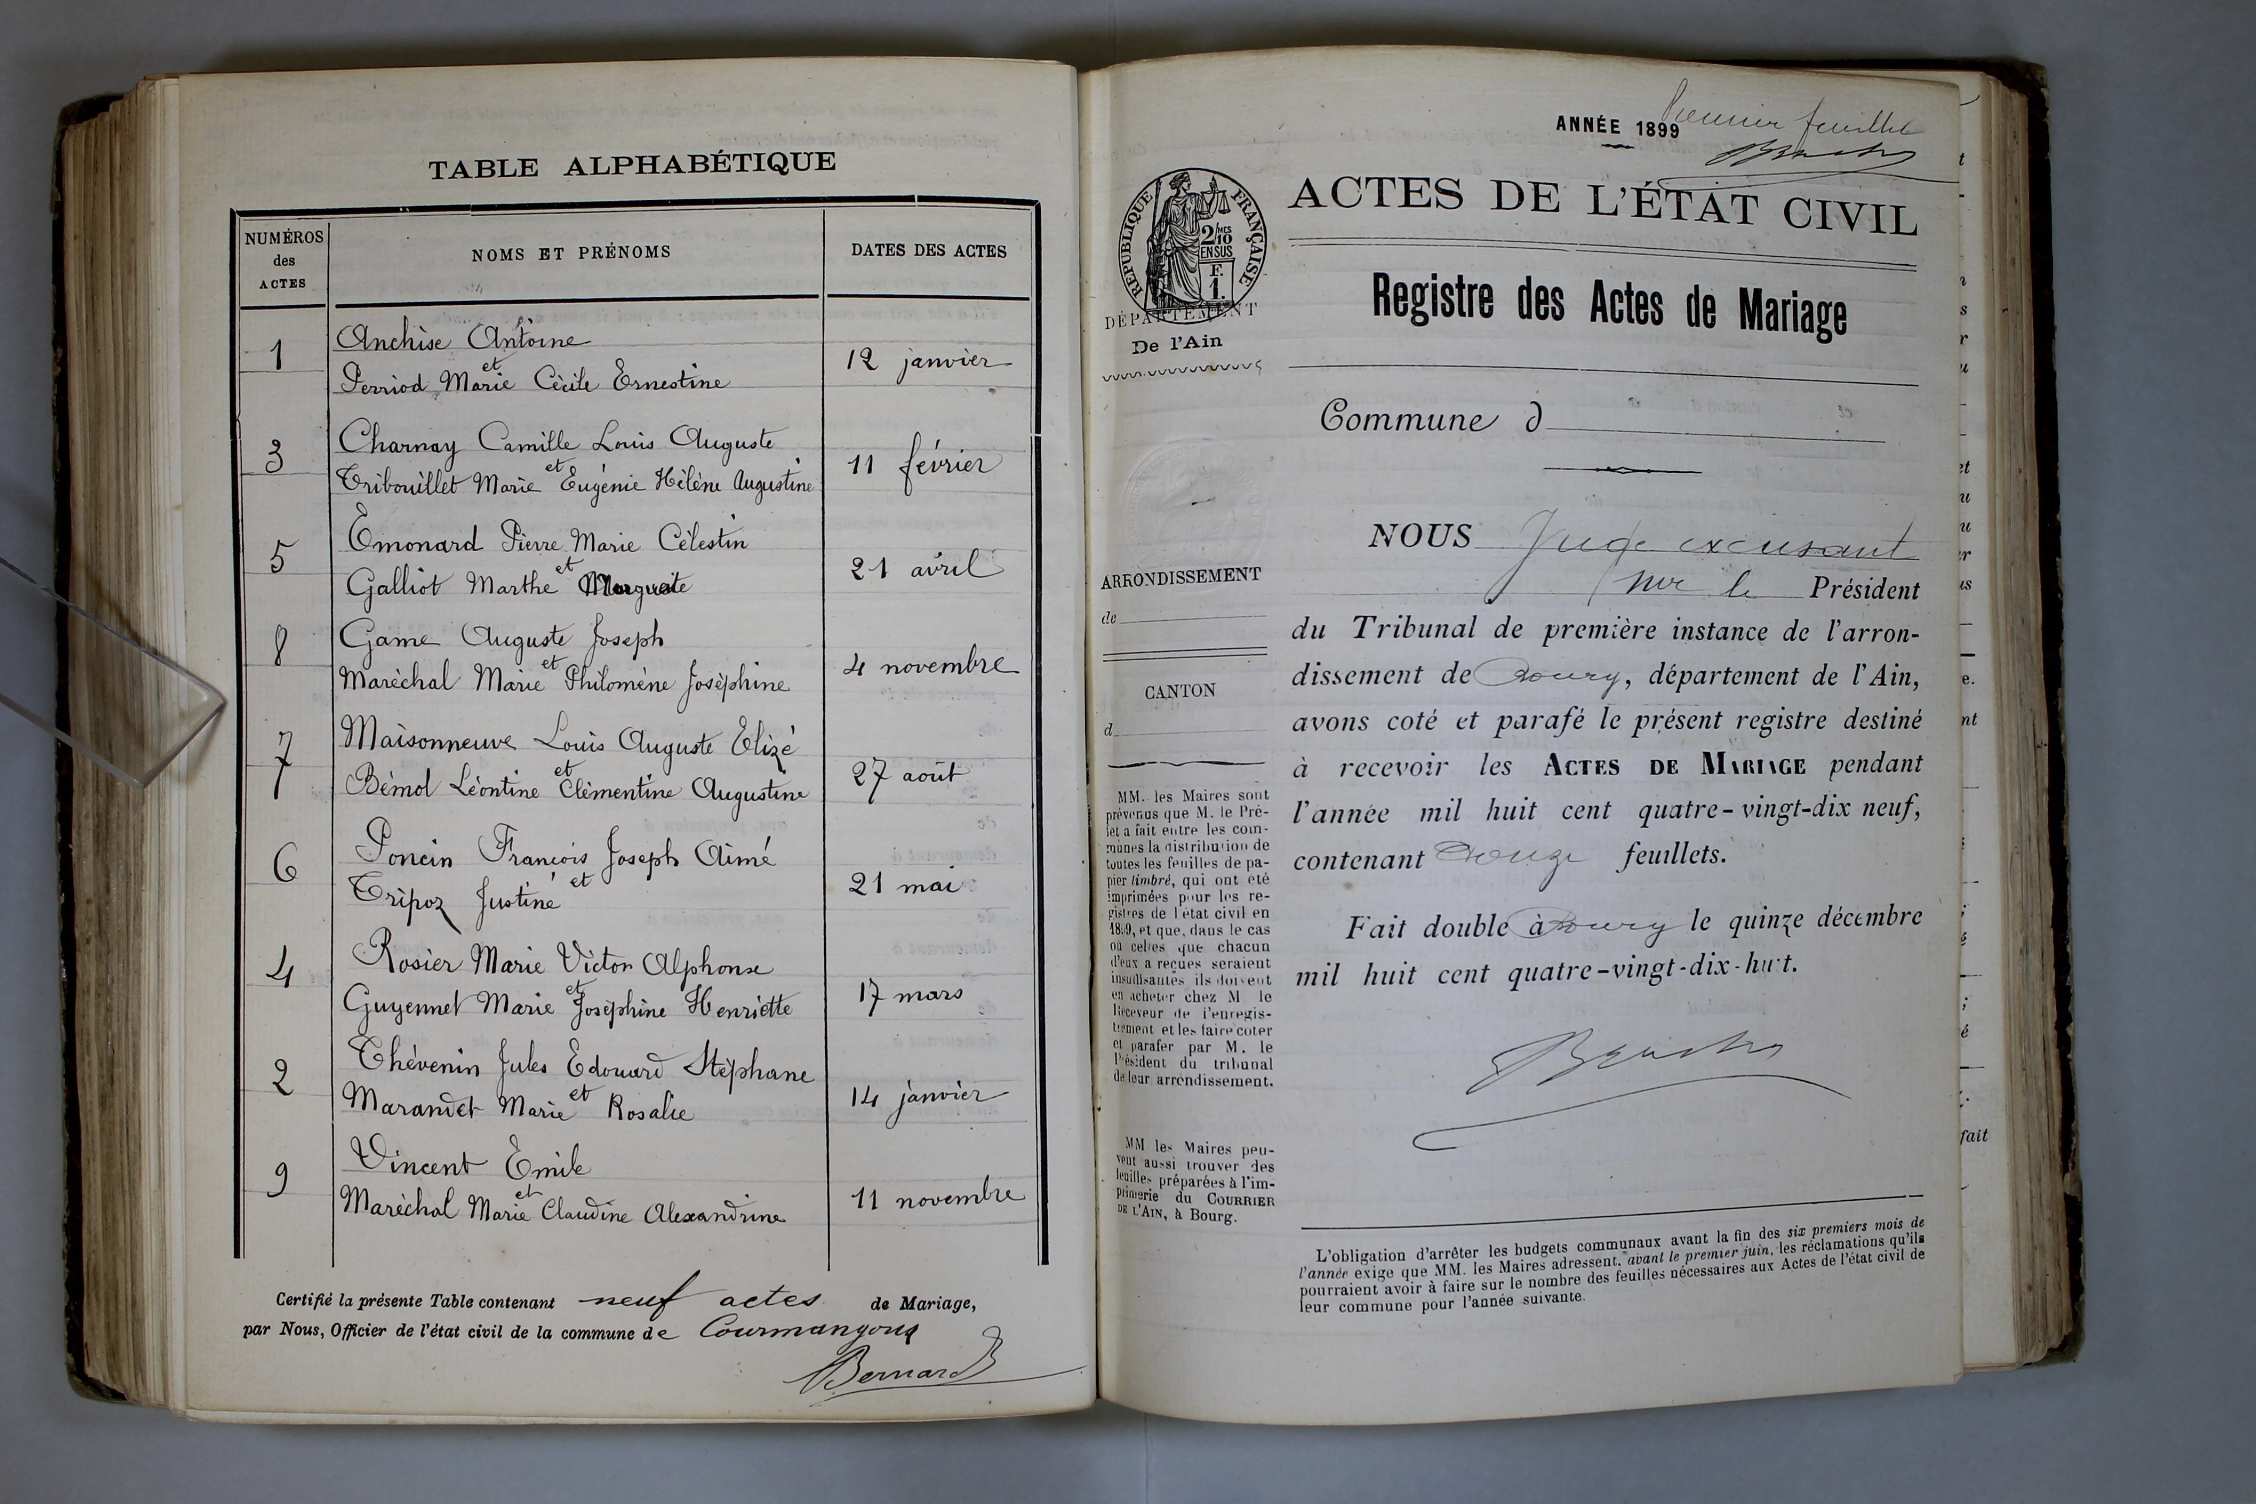 TABLE ALPHABÉTIQUE
NUMÉROS
des
ACTES
NOMS ET PRÉNOMS
DATES DES ACTES
1
Anchise Antoine
et
Perriod Marie Cécile Ernestine
12 janvier
3
Charnay Camille Louis Auguste
et
Tribouillet Marie Eugénie Hélène Augustine
11 février
5
Emonard Pierre Marie Célestin
et
Galliot Marthe Marguerite
21 avril
8
Game Auguste Joseph
et
Maréchal Marie Philomène Joséphine
4 novembre
7
Maisonneuve Louis Auguste Elizé
et
Bémol Léontine Clémentine Augustine
27 août
6
Poncin François Joseph Aimé
et
Tripoz Justine
21 mai
4
Rosier Marie Victor Alphonse
et
Guyennet Marie Joséphine Henriette
17 mars
2
Thévenin Jules Edouard Stéphane
et
Marandet Marie Rosalie
14 janvier
9
Vincent Emile
et
Maréchal Marie Claudine Alexandrine
11 novembre
Certifié la présente Table contenant neuf actes de Mariage,
par Nous, Officier de l'état civil de la commune de Courmangoux
Bernard
Premier feuillet
ANNÉE 1899
RÉPUBLIQUE FRANÇAISE
2/10 MES
EN SUS
F.
1.
ACTES DE L'ÉTAT CIVIL
DÉPARTEMENT
De l'Ain
Registre des Actes de Mariage
Commune d
ARRONDISSEMENT
de
CANTON
d
MM. les Maires sont
prévenus que M. le Pré-
fet a fait entre les com-
munes la distribution de
toutes les feuilles de pa-
pier timbré, qui ont été
imprimées pour les re-
gistres de l'état civil en
1899, et que, dans le cas
où celles que chacun
d'eux a reçues seraient
insuffisantes ils doivent
en acheter chez M le
Receveur de l'enregis-
trement et les faire coter
et parafer par M. le
Président du tribunal
de leur arrondissement.
MM les Maires peu-
vent aussi trouver des
feuilles préparées à l'im-
primerie du COURRIER
DE L'AIN, à Bourg.
NOUS Juge excusant
Mr le Président
du Tribunal de première instance de l'arron-
dissement de Bourg, département de l'Ain,
avons coté et parafé le présent registre destiné
à recevoir les ACTES DE MARIAGE pendant
l'année mil huit cent quatre-vingt-dix neuf,
contenant Douze feuillets.
Fait double à Bourg le quinze décembre
mil huit cent quatre-vingt-dix-huit.
L'obligation d'arrêter les budgets communaux avant la fin des six premiers mois de
l'année exige que MM. les Maires adressent, avant le premier juin, les réclamations qu'ils
pourraient avoir à faire sur le nombre des feuilles nécessaires aux Actes de l'état civil de
leur commune pour l'année suivante.
fait